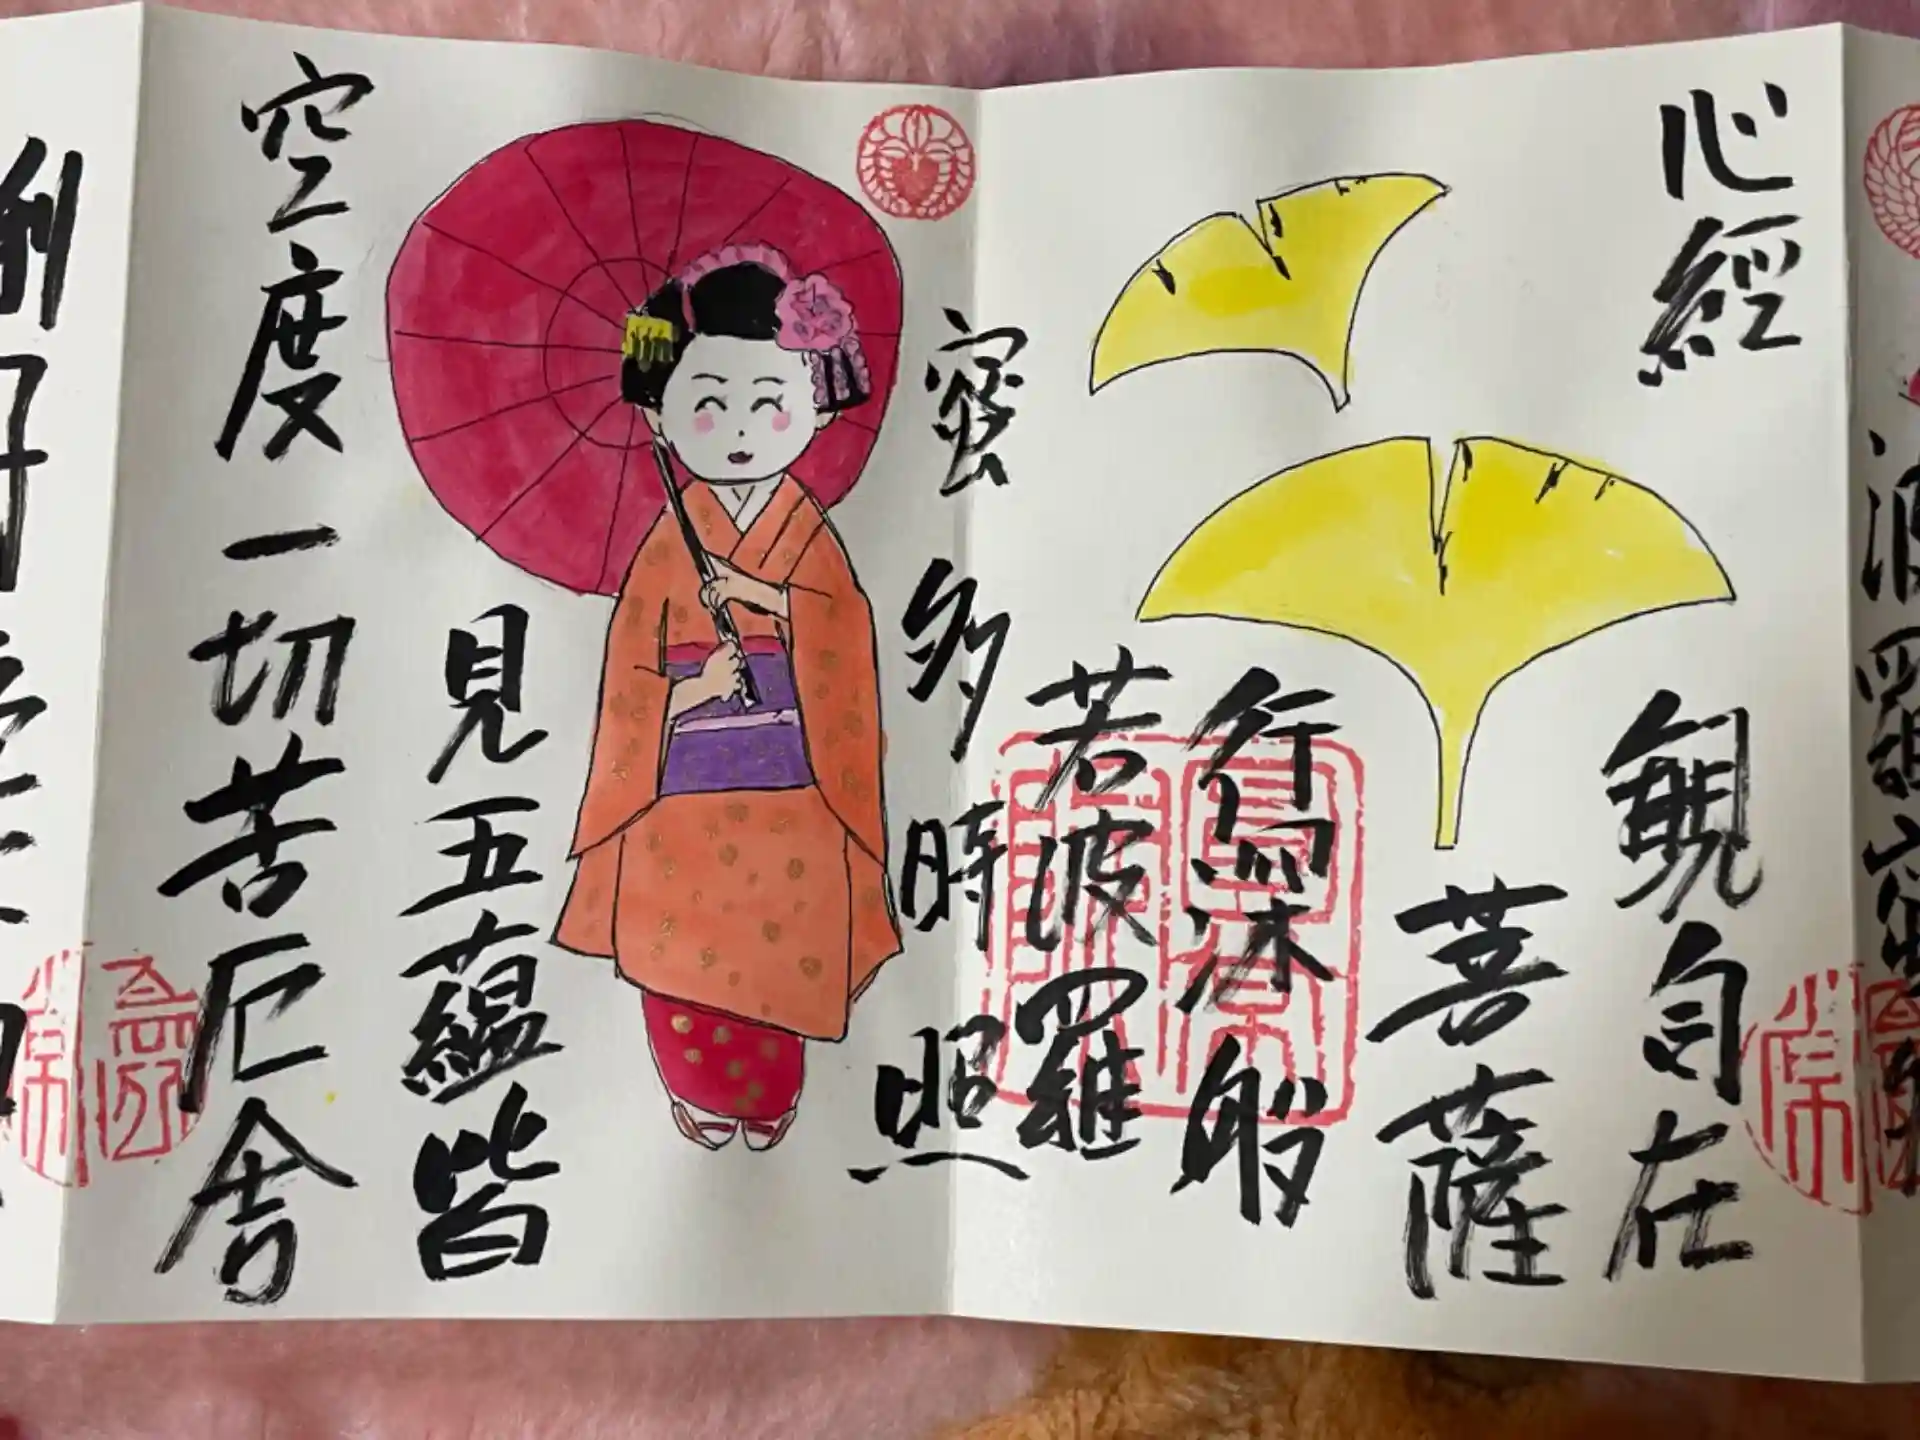 波羅蜜多
心經
觀自在
菩薩
行深般
若波羅
蜜多時照
見五蘊皆
空度一切苦厄舎
利子